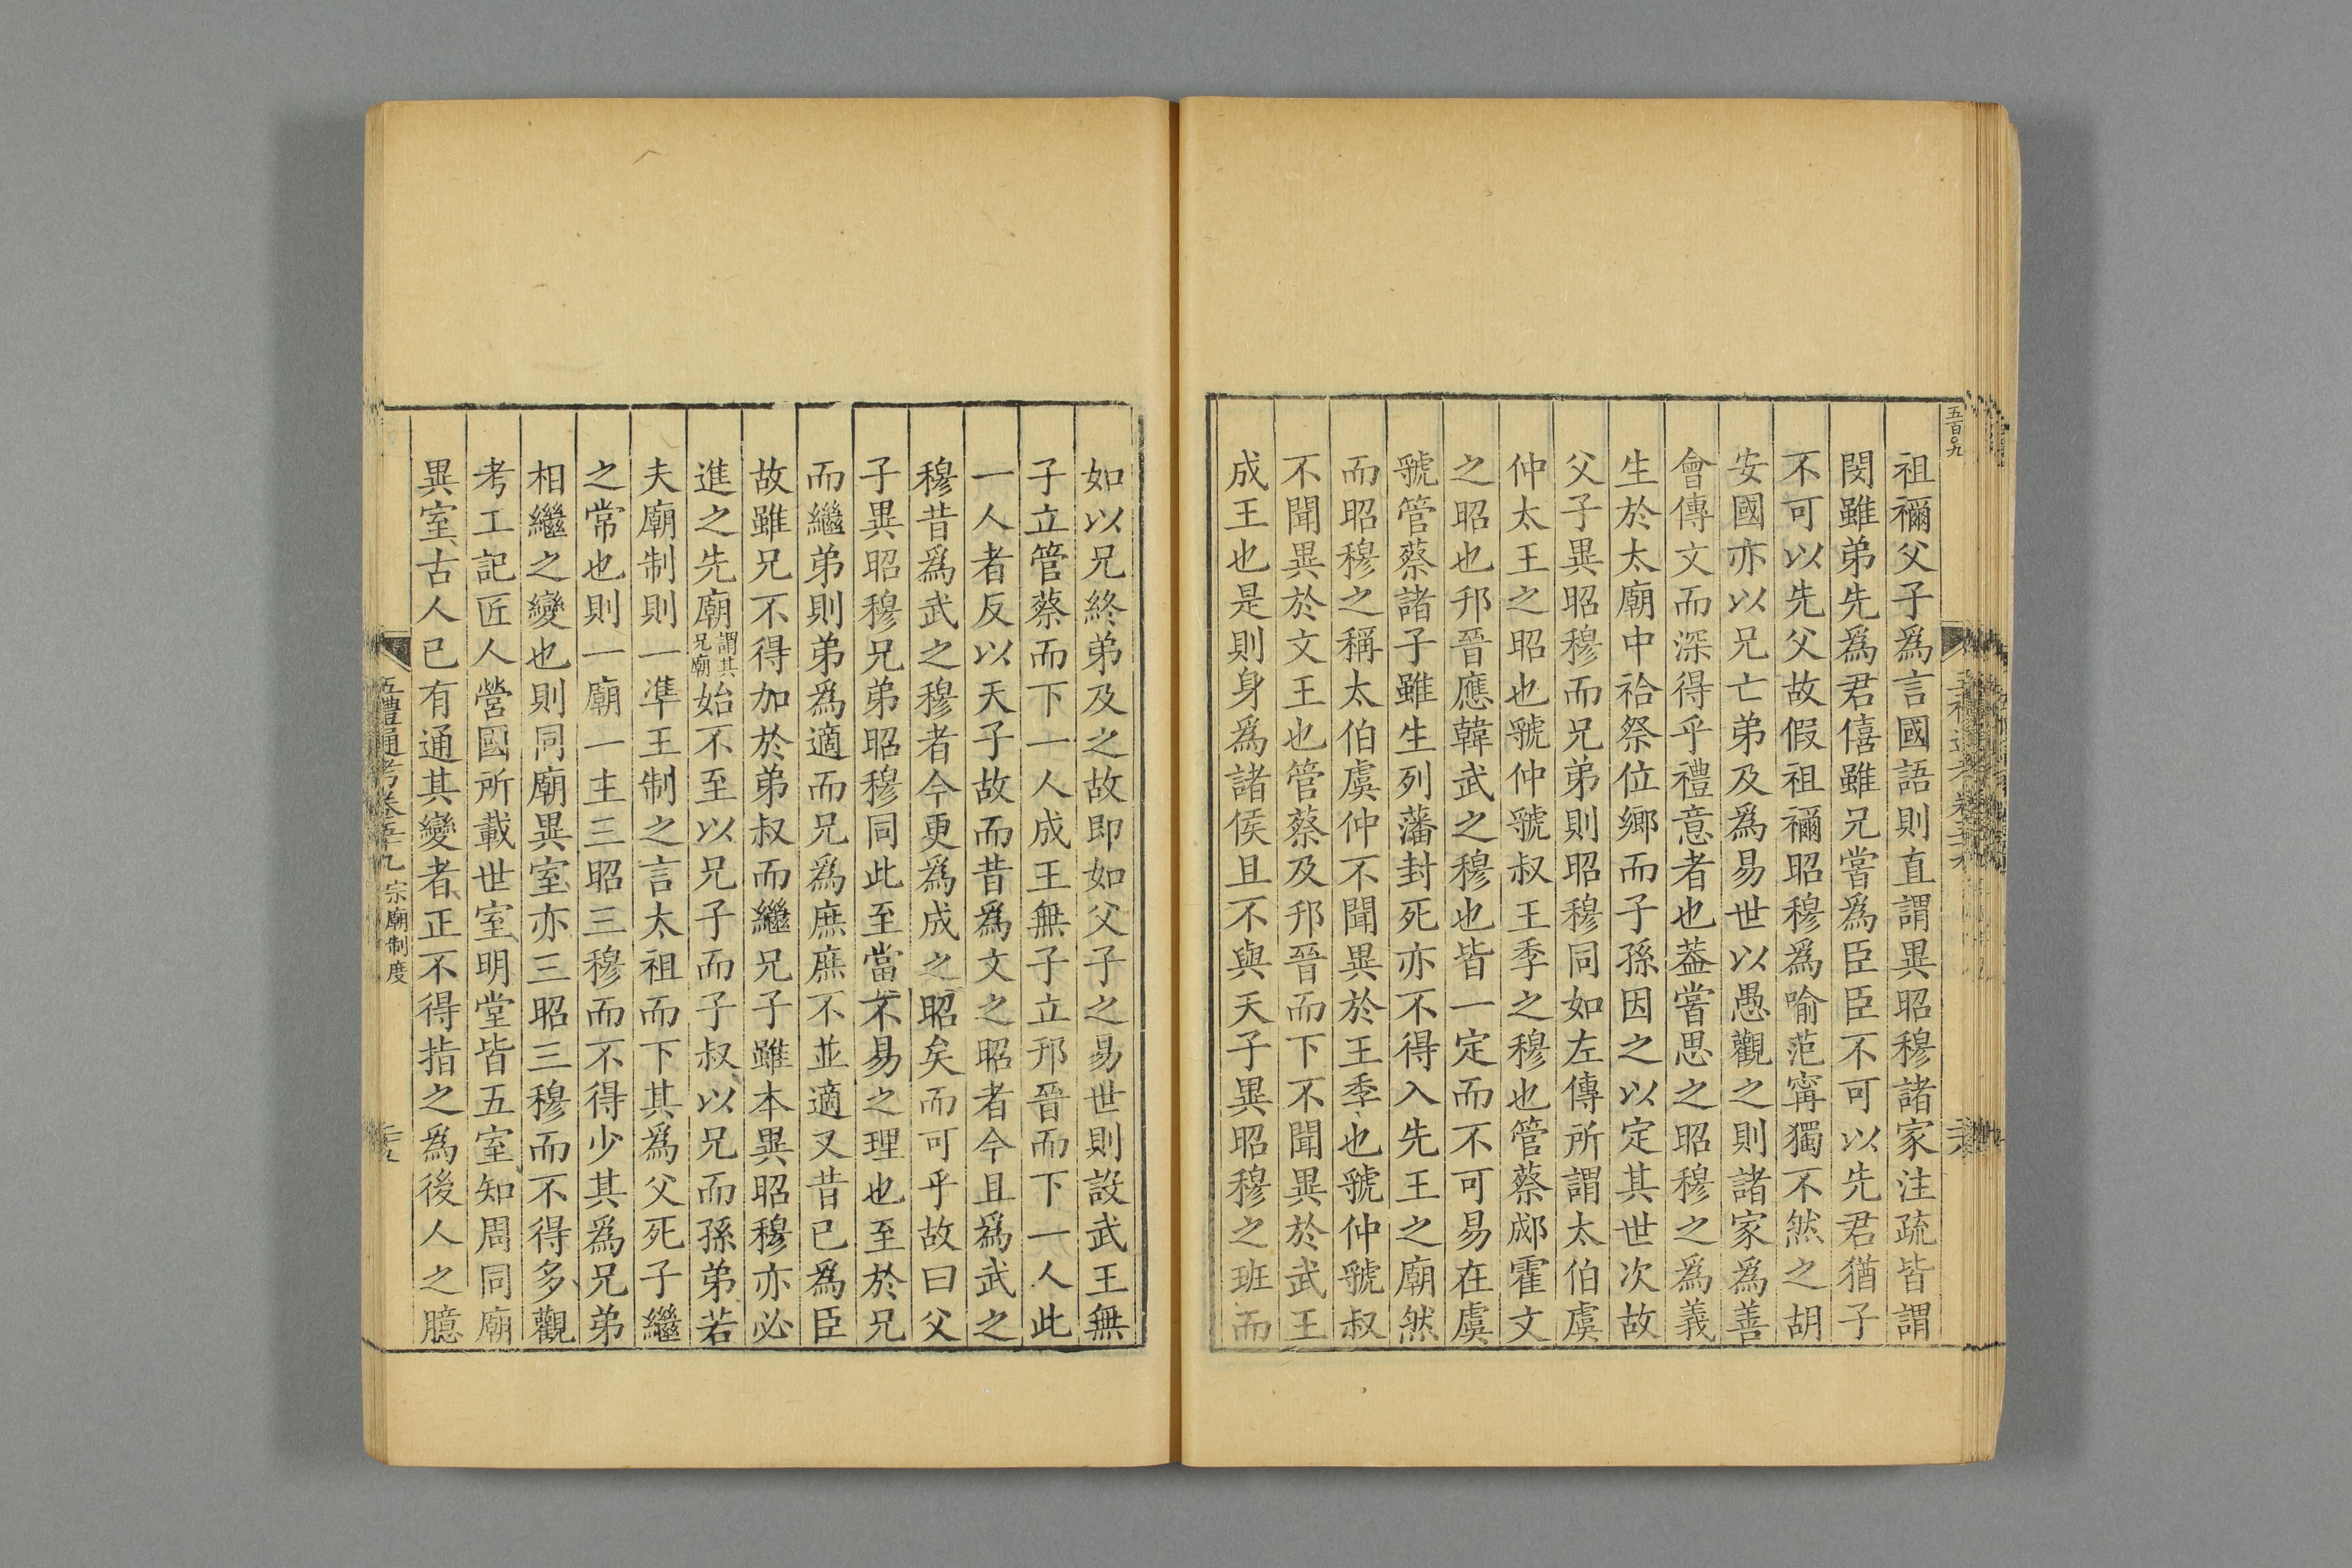 五百〇九
祖禰父子爲言國語則直謂異昭穆諸家注疏皆謂
閔雖弟先爲君僖雖兄嘗爲臣臣不可以先君猶子
不可以先父故假祖禰昭穆爲喻范甯獨不然之胡
安國亦以兄亡弟及爲易世以愚觀之則諸家爲善
會傳文而深得乎禮意者也葢嘗思之昭穆之爲義
生於太廟中祫祭位鄉而子孫因之以定其世次故
父子異昭穆而兄弟則昭穆同如左傳所謂太伯虞
仲太王之昭也虢仲虢叔王季之穆也管蔡郕霍文
之昭也邘晉應韓武之穆也皆一定而不可易在虞
虢管蔡諸子雖生列藩封死亦不得入先王之廟然
而昭穆之稱太伯虞仲不聞異於王季也虢仲虢叔
不聞異於文王也管蔡及邘晉而下不聞異於武王
成王也是則身爲諸侯且不與天子異昭穆之班而
如以兄終弟及之故即如父子之易世則設武王無
子立管蔡而下一人成王無子立邘晉而下一人此
一人者反以天子故而昔爲文之昭者今且爲武之
穆昔爲武之穆者今更爲成之昭矣而可乎故曰父
子異昭穆兄弟昭穆同此至當不易之理也至於兄
而繼弟則弟爲適而兄爲庶庶不並適又昔已爲臣
故雖兄不得加於弟叔而繼兄子雖本異昭穆亦必
進之先廟謂其兄廟始不至以兄子而子叔以兄而孫弟若
夫廟制則一準王制之言太祖而下其爲父死子繼
之常也則一廟一主三昭三穆而不得少其爲兄弟
相繼之變也則同廟異室亦三昭三穆而不得多觀
考工記匠人營國所載世室明堂皆五室知周同廟
異室古人已有通其變者正不得指之爲後人之臆
五禮通考卷五十九 宗廟制度